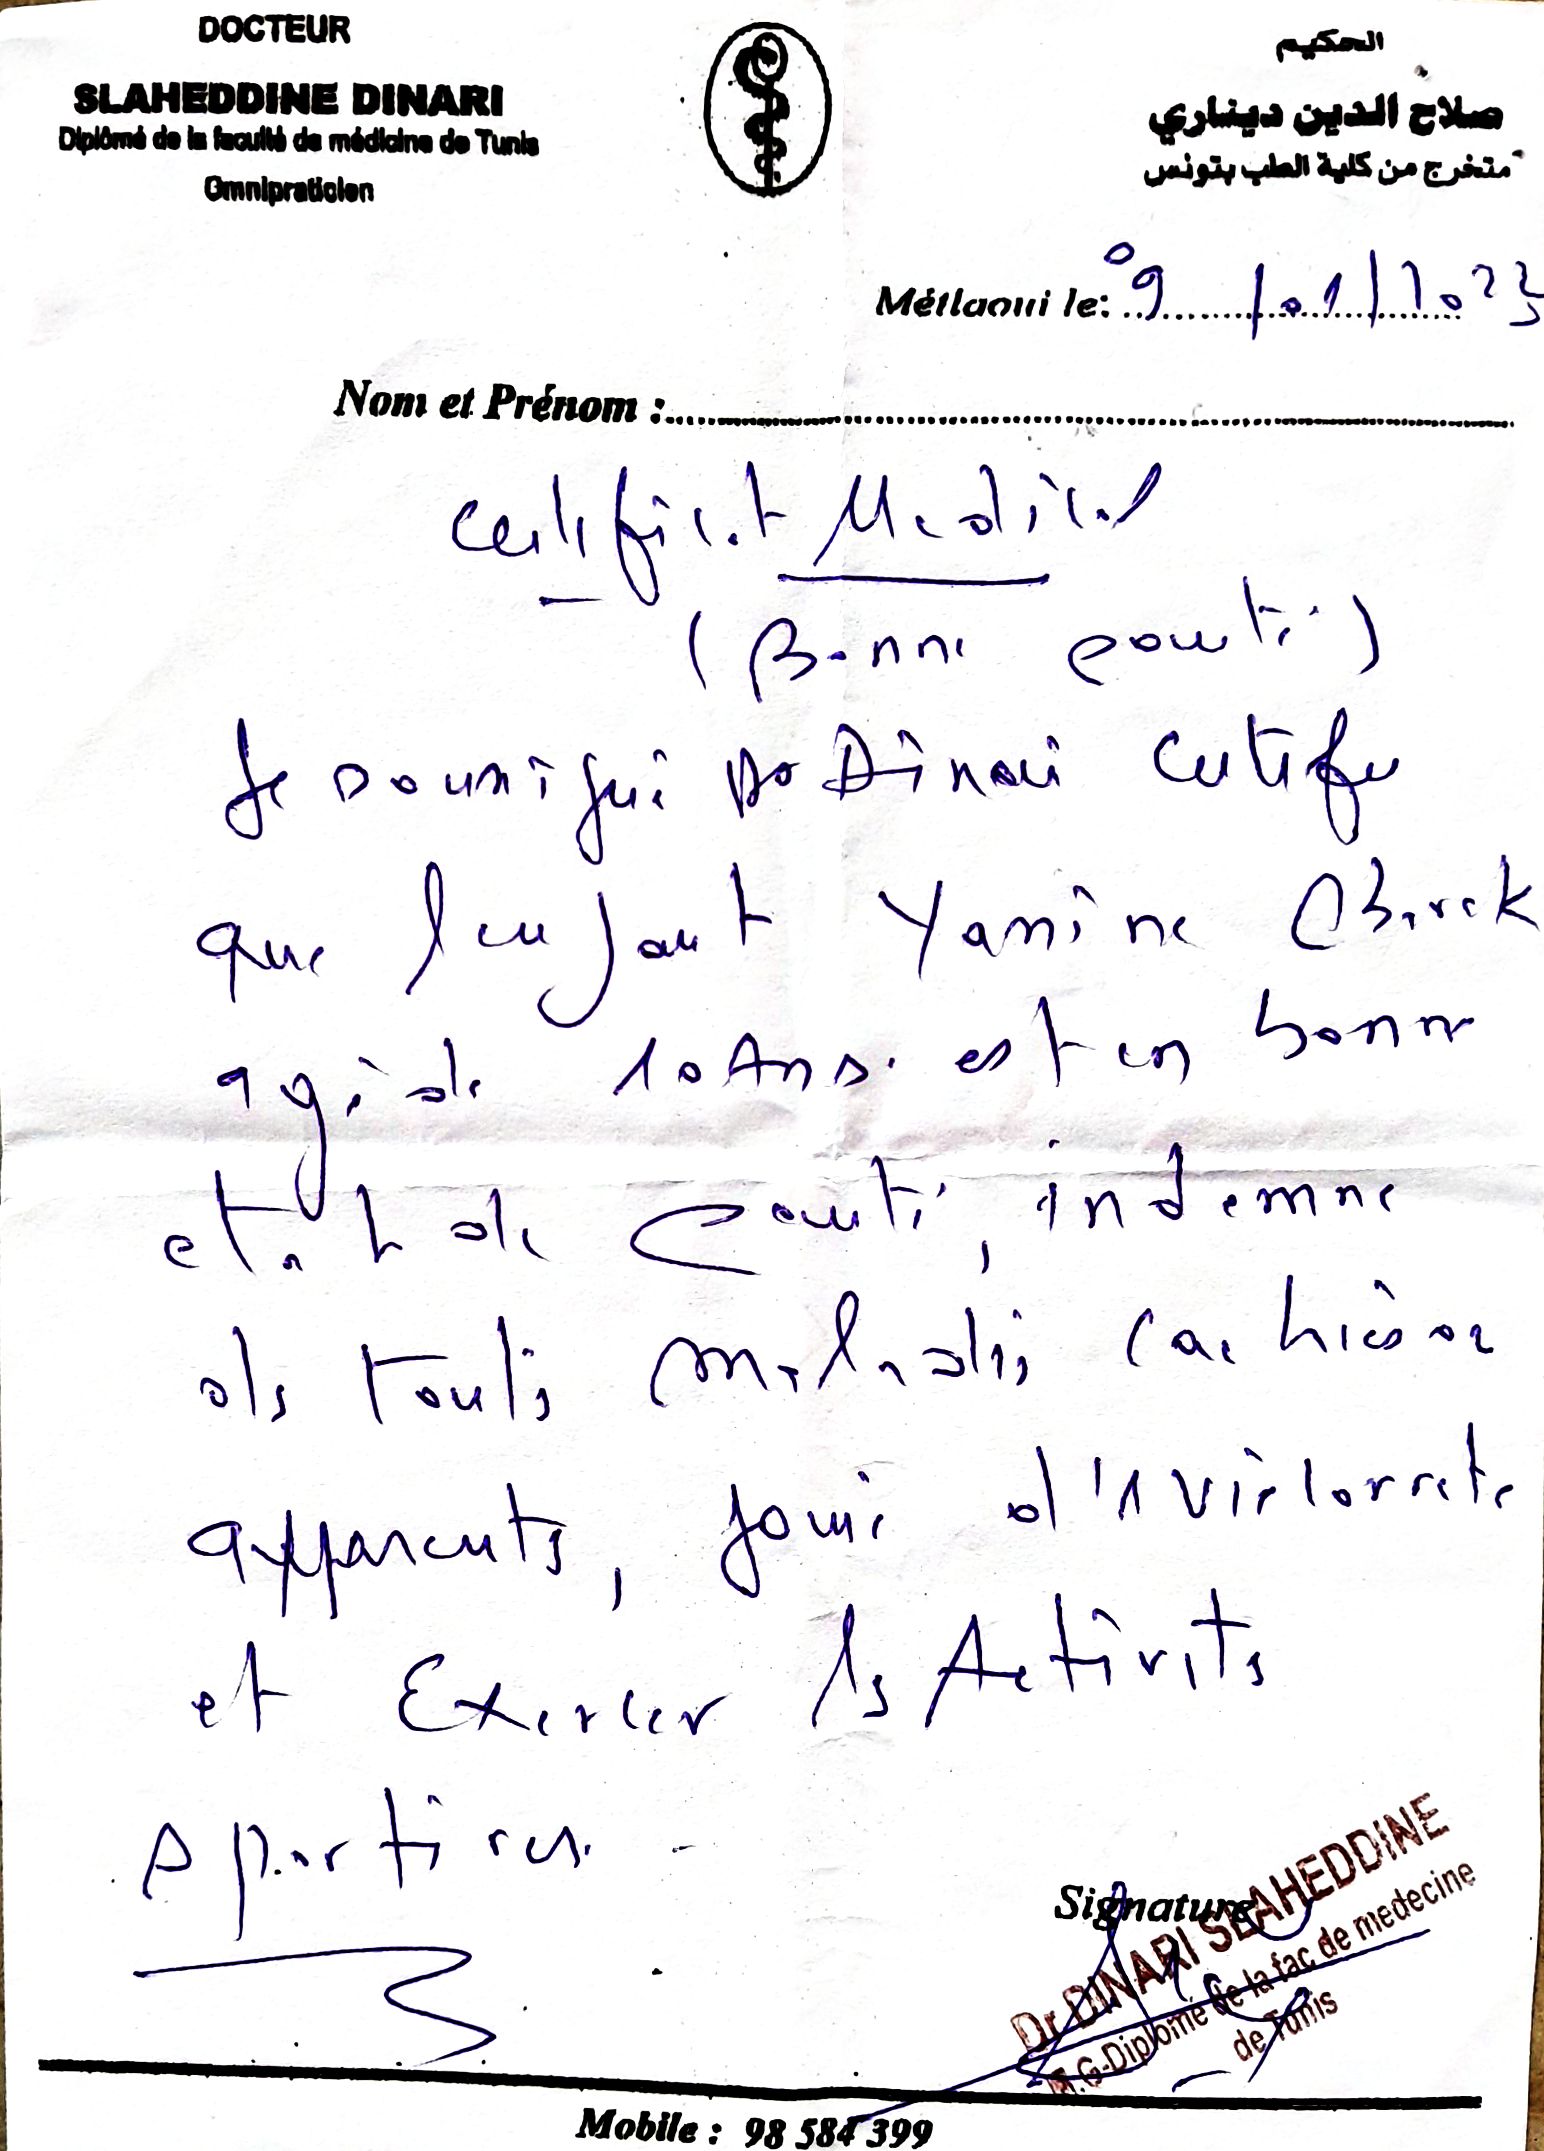 DOCTEUR
SLAHEDDINE DINARI
Diplômé de la faculté de médicine de Tunis
Omnipraticien
الحكيم
صلاح الدين ديناري
متخرج من كلية الطب بتونس
Métlaoui le: 09/01/2023
Nom et Prénom :
Certificat Medical
(Bonne santé)
Je soussigné Dr Dinari certifie
que l'enfant Yasmine
agé de 10 Ans. est en bonne
etat de santé, indemne
de toutes maladies cachées ou
apparents, jouie d'1 vie correcte
et Exercer les Activités
Sportives.
Signature
Dr DINARI SLAHEDDINE
M.G-Diplomé de la fac de medecine
de Tunis
Mobile : 98 584 399